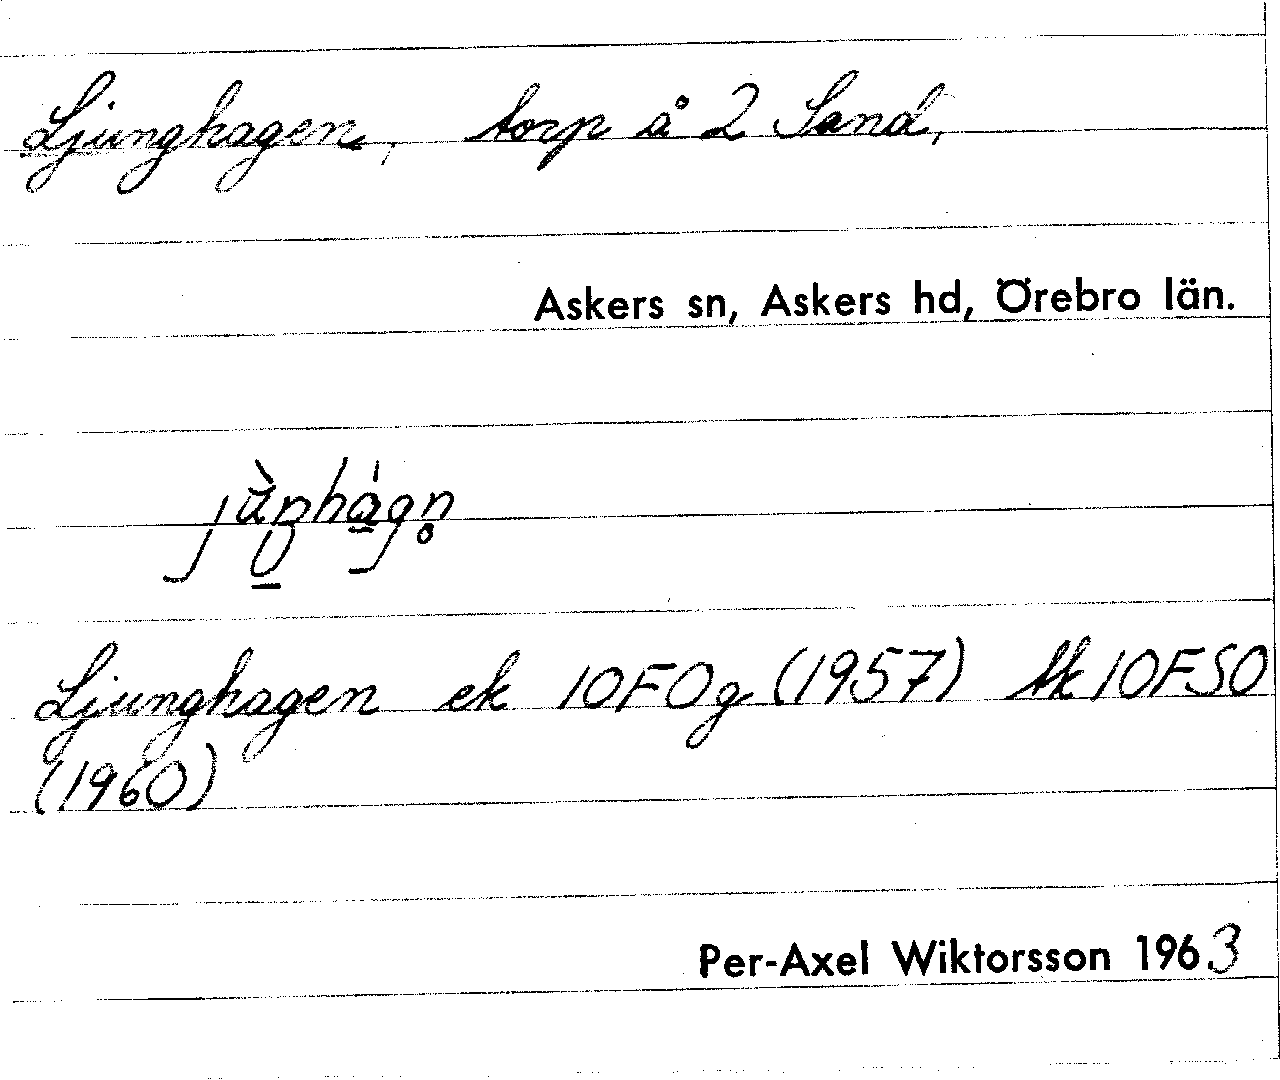 Ljunghagen, torp å 2 Sand,
Askers sn, Askers hd, Örebro län.
Ljunghagen ek 10F0g (1957) tk 10F50
(1960)
Per-Axel Wiktorsson 1963